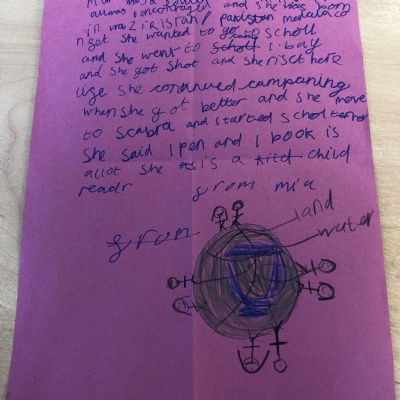 and she was born
in waziristan pakistan
not she wanted to go to scholl
and she went to scholl 1 bay
and she got shot and she risct here
life she continued campaning
when she got better and she move
to and started scholl
she said 1 pen and 1 book is
allot she is a kitd child
readr
from mia
from
land
water